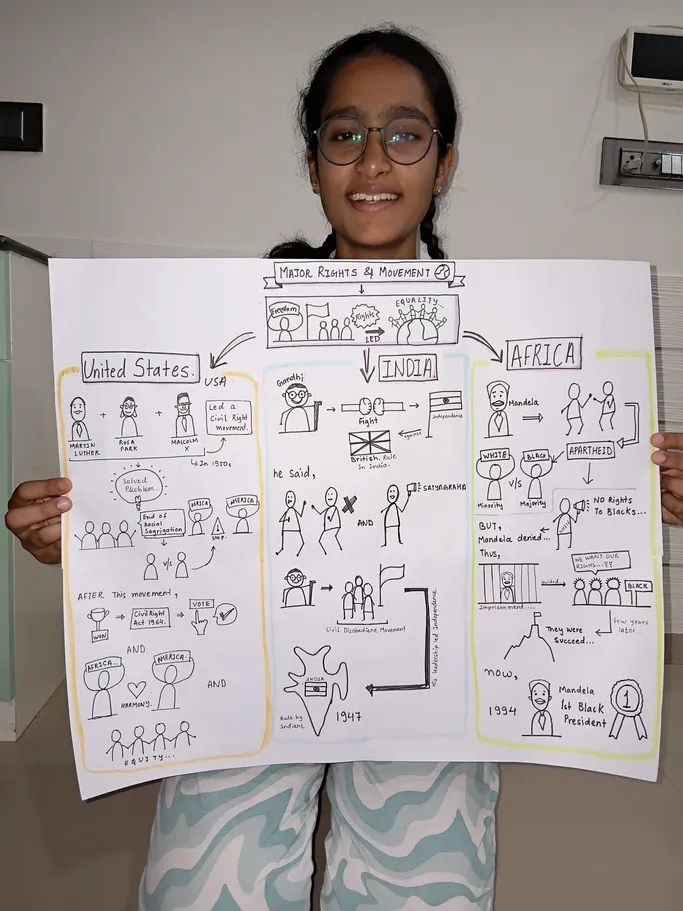 MAJOR RIGHTS & MOVEMENT
Freedom
Rights
LED
EQUALITY...
United States.
USA
MARTIN
LUTHER
+
ROSA
PARK
+
MALCOLM
X
Led a
Civil Right
movement.
In 1950s
Solved
Problem..
End of
Racial
Segrigation
AFRICA
AMERICA
STOP.
V/S
AFTER This movement,
WON
Civil Right
Act 1964.
VOTE
AND
AFRICA..
AMERICA.
HARMONY.
AND
EQUITY...
INDIA
Gandhi
Fight
Independence
against
British Rule
In India.
he said,
AND
SATYAGRAHA
Civil Disobediene Movement
His leadership led Independence.
INDIA
Rule by
Indians.
1947
AFRICA
Mandela
APARTHEID
WHITE
V/S
BLACK
Minority
Majority
NO Rights
To Blacks...
BUT,
Mandela denied...
Thus,
Imprisonment....
WE WANT OUR
RIGHTS...!!
BLACK
Few years
later...
They were
Succeed...
now,
1994
Mandela
1st Black
President
1